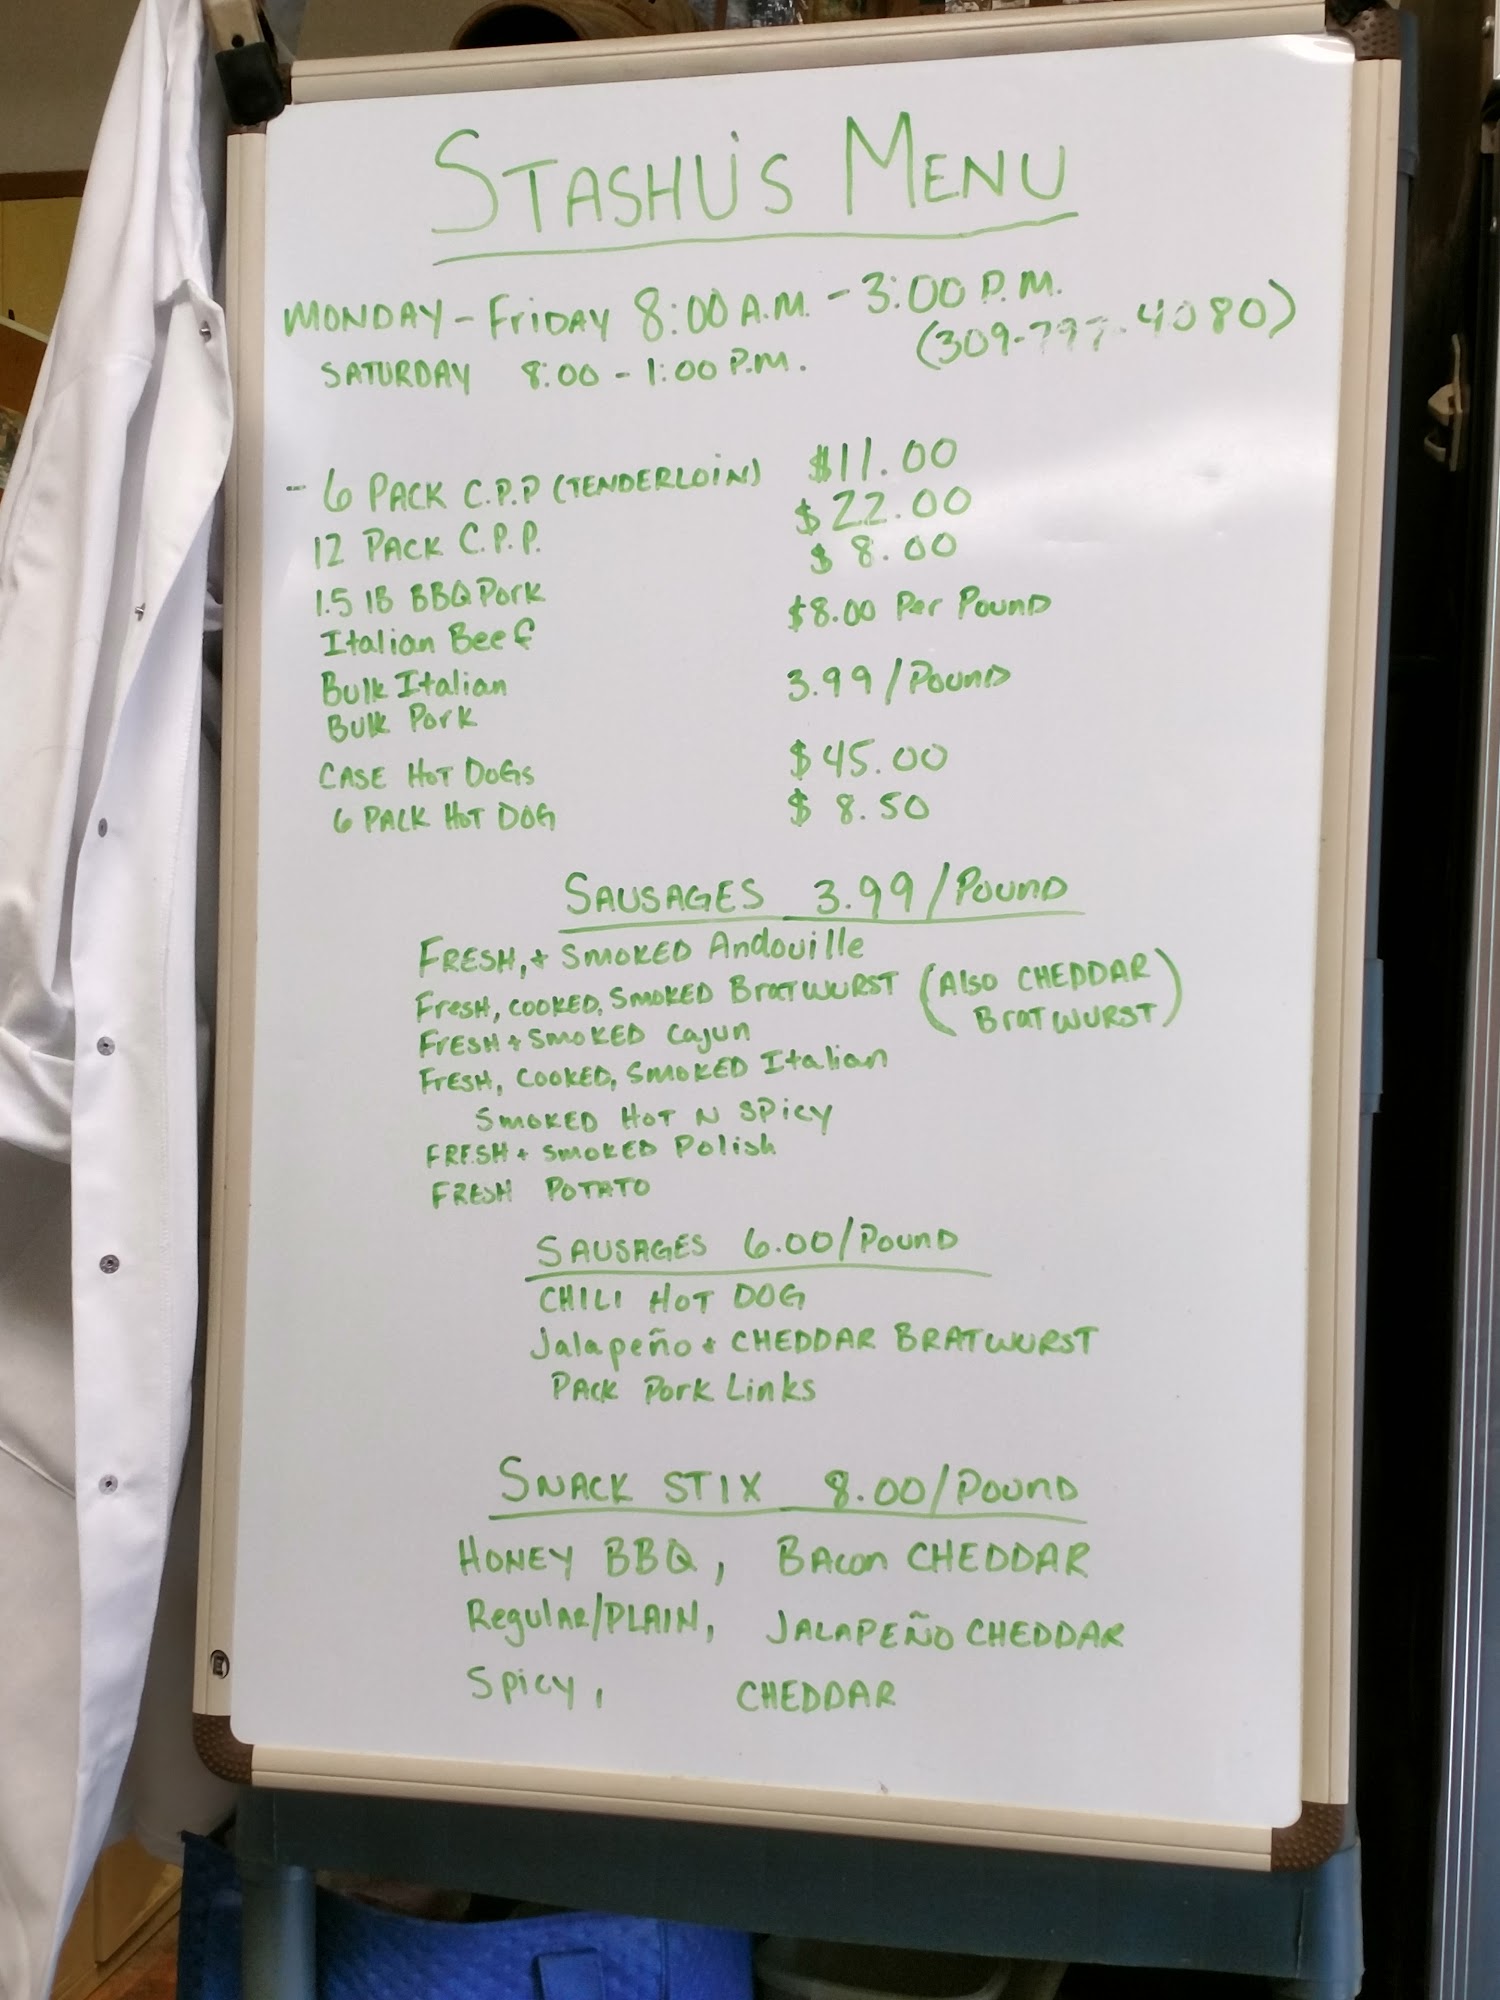 STASHU'S MENU
MONDAY - FRIDAY 8:00 A.M. - 3:00 P.M.
SATURDAY 8:00 - 1:00 P.M. (309-797-4080)
- 6 PACK C.P.P (TENDERLOIN) $11.00
12 PACK C.P.P. $22.00
1.5 lB BBQ Pork $8.00
Italian Beef $8.00 Per Pound
Bulk Italian 3.99/Pound
Bulk Pork
CASE HOT DOGS $45.00
6 PACK HOT DOG $8.50
SAUSAGES 3.99/Pound
FRESH, + SMOKED Andouille
Fresh, COOKED, SMOKED BratWURST (Also CHEDDAR
BratWURST)
FrESH + SmOKED Cajun
FrESH, COOKED, SMOKED Italian
SMOKED HOT N SPicy
FRESH + SMOKED Polish
FRESH POTATO
SAUSAGES 6.00/Pound
CHILI HOT DOG
Jalapeño + CHEDDAR BRATWURST
PACK Pork Links
SNACK STIX 8.00/Pound
HONEY BBQ, BAcon CHEDDAR
Regular/PLAIN, JALAPEÑO CHEDDAR
Spicy, CHEDDAR